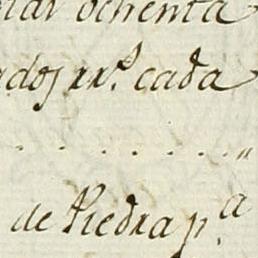 ochenta
dos rr.^s cada
. . . . . . . . "
de Piedra p.^a